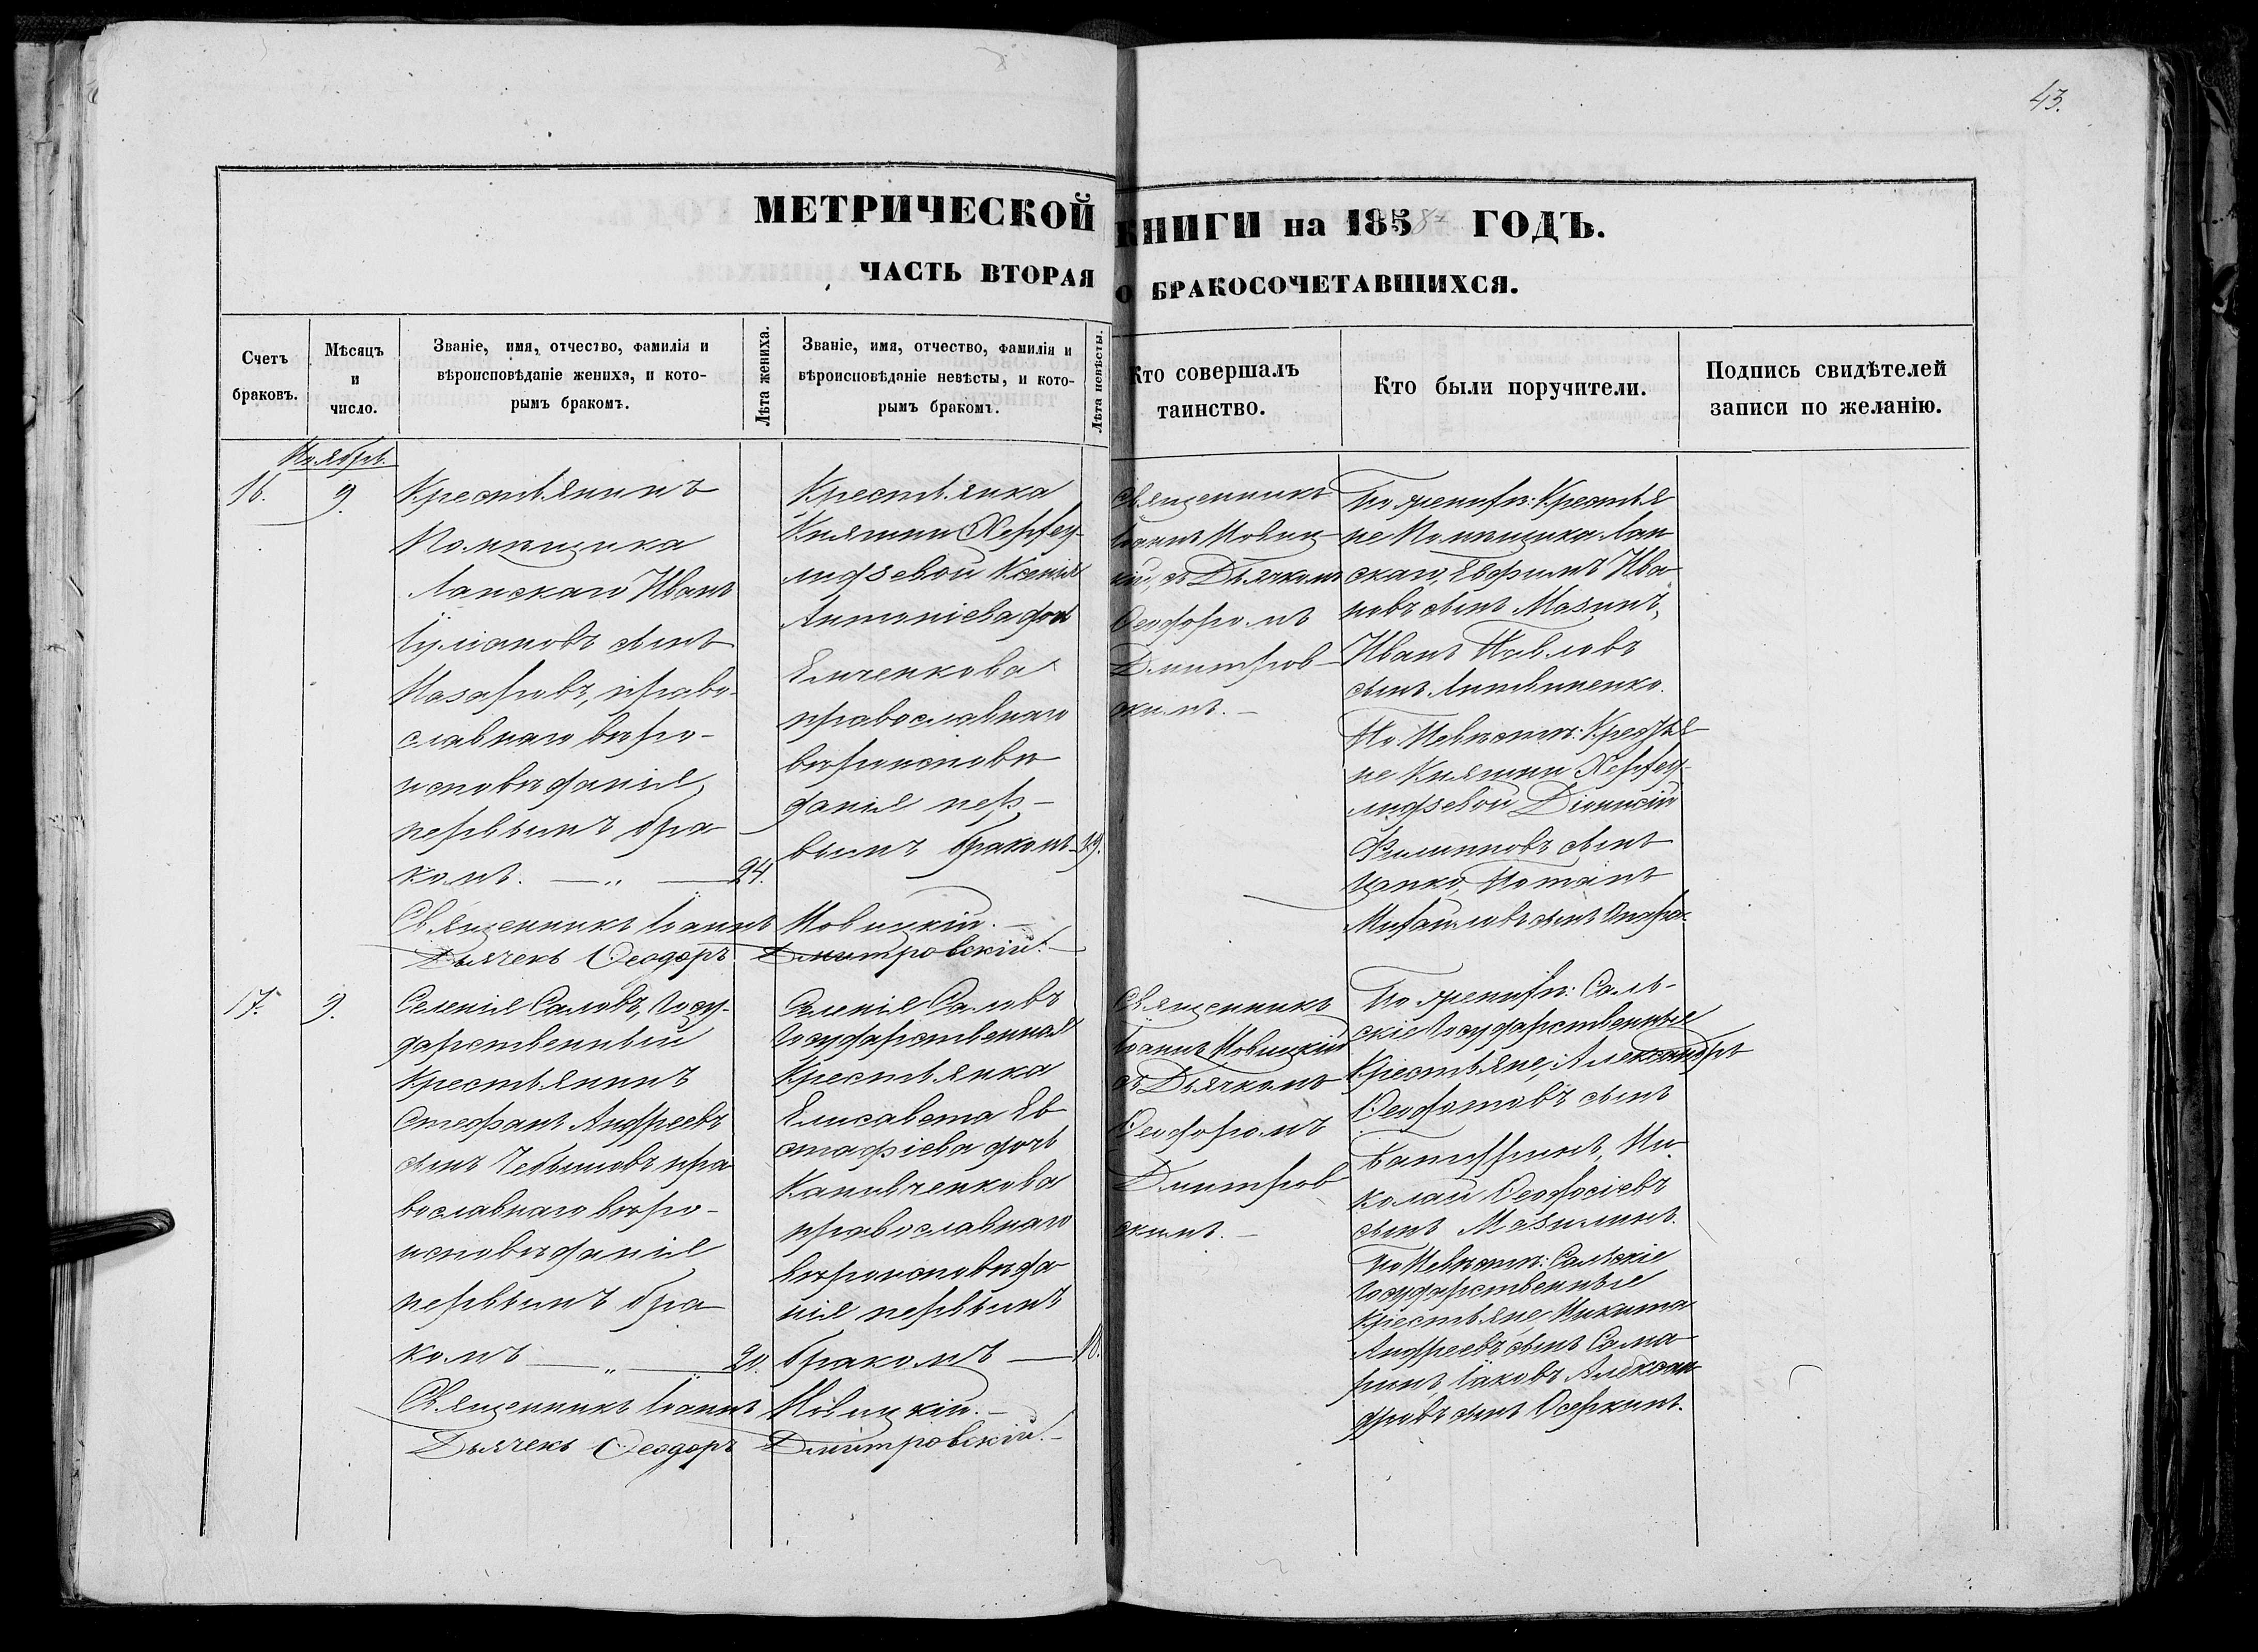 43.
МЕТРИЧЕСКОЙ КНИГИ на 1858 ГОДЪ.
ЧАСТЬ ВТОРАЯ О БРАКОСОЧЕТАВШИХСЯ.
Счетъ браковъ.
Мѣсяцъ и число.
Званіе, имя, отчество, фамилія и
вѣроисповѣданіе жениха, и кото-
рымъ бракомъ.
Лѣта жениха.
Званіе, имя, отчество, фамилія и
вѣроисповѣданіе невѣсты, и кото-
рымъ бракомъ.
Лѣта невѣсты.
Кто совершалъ
таинство.
Кто были поручители.
Подпись свидѣтелей
записи по желанію.
Ноябрь.
16.
9.
Крестьянинъ
Помѣщика
Ланскаго Иванъ
Іуліановъ сынъ
Назаровъ, право-
славнаго вѣро-
исповѣданія
первымъ бра
комъ. — „ — 24.
Крестьянка
Княгини Херхеу-
лидзевой Ксенія
Антоніева дочь
Емченкова
православнаго
вѣроисповѣ
данія пер-
вымъ бракомъ 19.
Священникъ
Іоаннъ Новиц-
кій, съ Дьячкомъ
Ѳеодоромъ
Дмитров-
скимъ. —
По женихѣ: Крестья
не Помѣщика Лан
скаго, Евфимъ Ива
новъ сынъ Мазинъ,
Иванъ Павловъ
сынъ Литвиненко.
По Невѣстѣ: Крестья
не Княгини Херхеу-
лидзевой Діонисій
Филипповъ сынъ
Цапко, Потапъ
Михайловъ сынъ
Священникъ Іоаннъ Новицкій. —
Дьячекъ Ѳеодоръ Дмитровскій. —
17.
9.
Селенія Саловъ, Госу-
дарственный
Крестьянинъ
Стефанъ Андреевъ
сынъ Чебышовъ пра
вославнаго вѣро-
исповѣданія
первымъ бра
комъ — „ — 20.
Селенія Саловъ
Государственная
Крестьянка
Елисавета Ев
стафіева дочь
Канивченкова
православнаго
вѣроисповѣда
нія первымъ
бракомъ — 18.
Священникъ
Іоаннъ Новицкій
съ Дьячкомъ
Ѳеодоромъ
Дмитров
скимъ. —
По женихѣ: Саль-
скіе Государственные
Крестьяне, Александръ
Ѳеодотовъ сынъ
Ни
колай Ѳеодосіевъ
сынъ Мазилинъ.
По Невѣстѣ: Сальскіе
Государственные
Крестьяне, Никита
Андреевъ сынъ Сама
ринъ, Іаковъ Алексан
дровъ сынъ Озеркинъ.
Священникъ Іоаннъ Новицкій. —
Дьячекъ Ѳеодоръ Дмитровскій. —